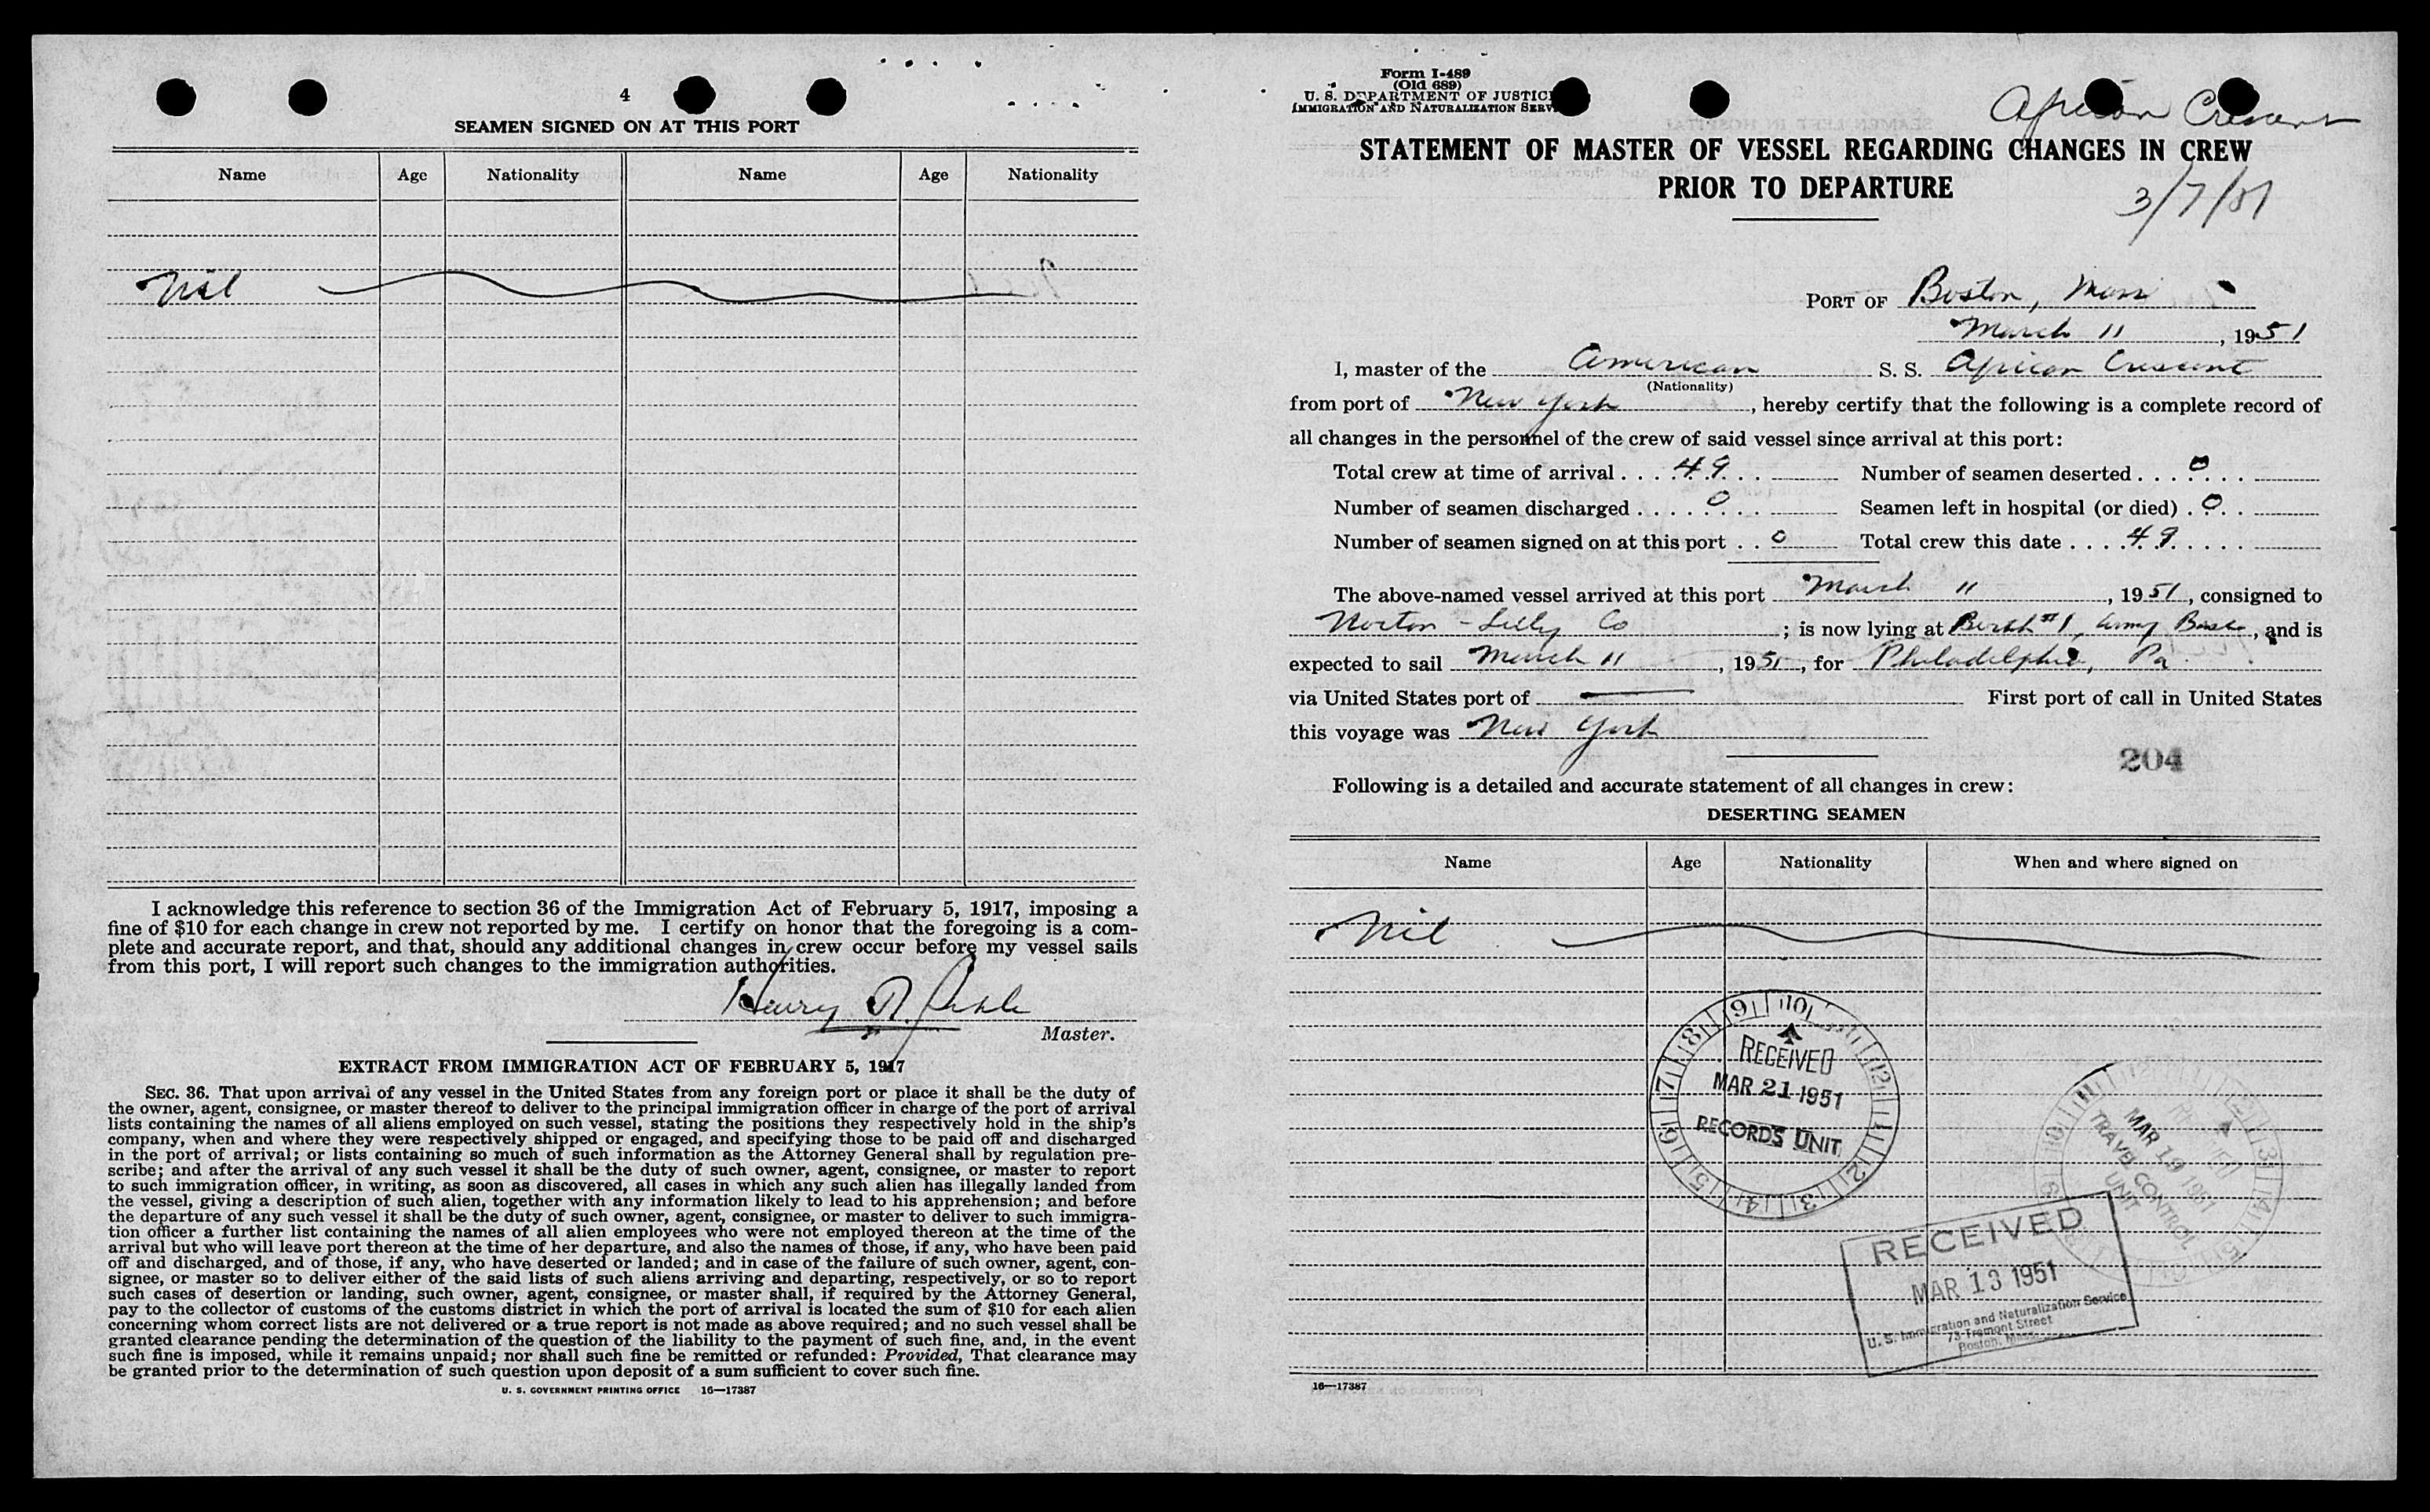 4
SEAMEN SIGNED ON AT THIS PORT
Name Age Nationality Name Age Nationality
Nil
I acknowledge this reference to section 36 of the Immigration Act of February 5, 1917, imposing a
fine of $10 for each change in crew not reported by me. I certify on honor that the foregoing is a com-
plete and accurate report, and that, should any additional changes in crew occur before my vessel sails
from this port, I will report such changes to the immigration authorities.
Henry
Master.
EXTRACT FROM IMMIGRATION ACT OF FEBRUARY 5, 1917
SEC. 36. That upon arrival of any vessel in the United States from any foreign port or place it shall be the duty of
the owner, agent, consignee, or master thereof to deliver to the principal immigration officer in charge of the port of arrival
lists containing the names of all aliens employed on such vessel, stating the positions they respectively hold in the ship's
company, when and where they were respectively shipped or engaged, and specifying those to be paid off and discharged
in the port of arrival; or lists containing so much of such information as the Attorney General shall by regulation pre-
scribe; and after the arrival of any such vessel it shall be the duty of such owner, agent, consignee, or master to report
to such immigration officer, in writing, as soon as discovered, all cases in which any such alien has illegally landed from
the vessel, giving a description of such alien, together with any information likely to lead to his apprehension; and before
the departure of any such vessel it shall be the duty of such owner, agent, consignee, or master to deliver to such immigra-
tion officer a further list containing the names of all alien employees who were not employed thereon at the time of the
arrival but who will leave port thereon at the time of her departure, and also the names of those, if any, who have been paid
off and discharged, and of those, if any, who have deserted or landed; and in case of the failure of such owner, agent, con-
signee, or master so to deliver either of the said lists of such aliens arriving and departing, respectively, or so to report
such cases of desertion or landing, such owner, agent, consignee, or master shall, if required by the Attorney General,
pay to the collector of customs of the customs district in which the port of arrival is located the sum of $10 for each alien
concerning whom correct lists are not delivered or a true report is not made as above required; and no such vessel shall be
granted clearance pending the determination of the question of the liability to the payment of such fine, and, in the event
such fine is imposed, while it remains unpaid; nor shall such fine be remitted or refunded: Provided, That clearance may
be granted prior to the determination of such question upon deposit of a sum sufficient to cover such fine.
U. S. GOVERNMENT PRINTING OFFICE 16—17387
Form I-489
(Old 689)
U. S. DEPARTMENT OF JUSTIC
IMMIGRATION AND NATURALIZATION SERV
African Crescent
STATEMENT OF MASTER OF VESSEL REGARDING CHANGES IN CREW
PRIOR TO DEPARTURE
3/7/51
PORT OF Boston, Mass
March 11, 1951
I, master of the American S. S. African Crescent
(Nationality)
from port of New York, hereby certify that the following is a complete record of
all changes in the personnel of the crew of said vessel since arrival at this port:
Total crew at time of arrival . . . . 49 . . Number of seamen deserted . . . 0 . . .
Number of seamen discharged . . . . . 0 . . Seamen left in hospital (or died) . 0 . .
Number of seamen signed on at this port . . 0 Total crew this date . . . . 49 . . . . .
The above-named vessel arrived at this port March 11, 1951, consigned to
Norton - Lilly Co; is now lying at Berth #1, Army Base, and is
expected to sail March 11, 1951, for Philadelphia, Pa
via United States port of — First port of call in United States
this voyage was New York
204
Following is a detailed and accurate statement of all changes in crew:
DESERTING SEAMEN
Name Age Nationality When and where signed on
Nil
9 10 11 12 1 2 3 4 5 6 7 8
RECEIVED
MAR 21 1951
RECORDS UNIT
MAR 19 1951
TRAVEL CONTROL
UNIT
RECEIVED
MAR 13 1951
U. S. Immigration and Naturalization Service
73 Tremont Street
Boston, Mass.
16—17387